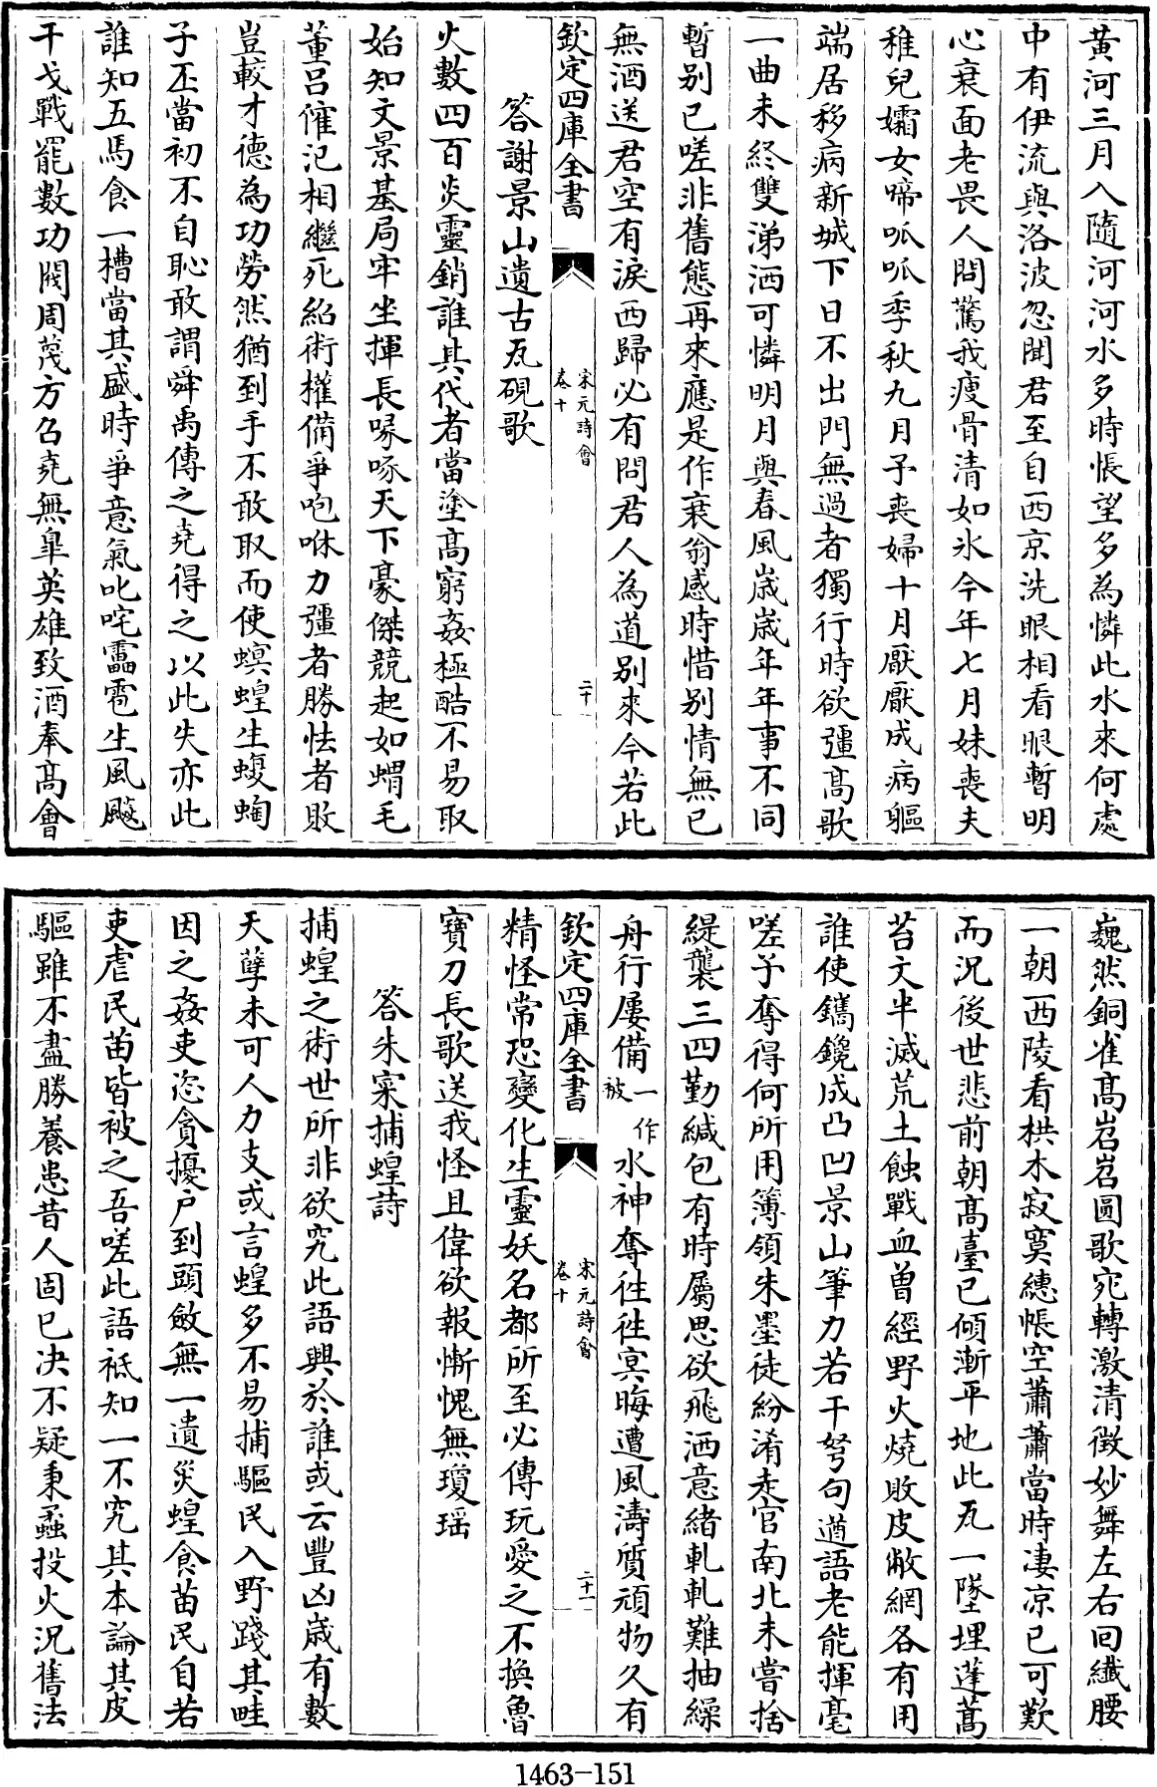 黄河三月入隨河河水多時悵望多為憐此水來何處
中有伊流與洛波忽聞君至自西京洗眼相看眼暫明
心衰面老畏人問驚我瘦骨清如氷今年七月妹喪夫
稚兒孀女啼呱呱季秋九月予喪婦十月厭厭成病軀
端居移病新城下日不出門無過者獨行時欲彊髙歌
一曲未終雙涕洒可憐明月與春風歳歳年年事不同
暫别已嗟非舊態再來應是作衰翁感時惜别情無已
無酒送君空有淚西歸必有問君人為道别來今若此
欽定四庫全書
宋元詩會
卷十
二十
答謝景山遺古瓦硯歌
火數四百炎靈銷誰其代者當塗髙窮姦極酷不易取
始知文景基局牢坐揮長喙啄天下豪傑競起如蝟毛
董吕傕汜相繼死紹術權備爭咆咻力彊者勝怯者敗
豈較才德為功勞然猶到手不敢取而使螟蝗生蝮蜪
子丕當初不自恥敢謂舜禹傳之堯得之以此失亦此
誰知五馬食一槽當其盛時爭意氣叱咤靁雹生風飈
干戈戰罷數功閥周蔑方召堯無臯英雄致酒奉髙會
巍然銅雀髙岧岧圓歌宛轉激清徴妙舞左右回纖腰
一朝西陵看栱木寂寞繐帳空蕭蕭當時凄凉已可歎
而况後世悲前朝髙臺已傾漸平地此瓦一墜埋蓬蒿
苔文半滅荒土蝕戰血曽經野火燒敗皮敝網各有用
誰使鐫鑱成凸凹景山筆力若干弩句遒語老能揮毫
嗟予奪得何所用簿領朱墨徒紛淆走官南北未嘗捨
緹襲三四勤緘包有時屬思欲飛洒意緒軋軋難抽繰
舟行屢備一作被水神奪往往㝠晦遭風濤質頑物久有
欽定四庫全書
宋元詩會
卷十
二十一
精怪常恐變化生靈妖名都所至必傳玩愛之不換魯
寶刀長歌送我怪且偉欲報慚愧無瓊瑶
答朱寀捕蝗詩
捕蝗之術世所非欲究此語興於誰或云豐凶歳有數
天孽未可人力支或言蝗多不易捕驅民入野踐其畦
因之姦吏恣貪擾户到頭斂無一遺災蝗食苗民自若
吏虐民苗皆被之吾嗟此語祗知一不究其本論其皮
驅雖不盡勝養患昔人固已决不疑秉蟊投火况舊法
1463-151